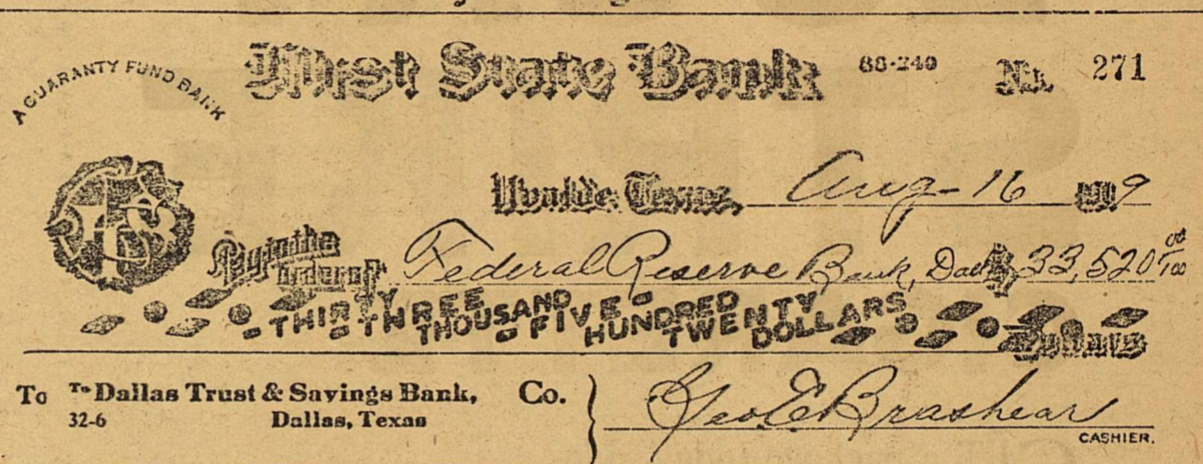 A GUARANTY FUND BANK
First State Bank 88-240 No. 271
Uvalde, Texas, Aug- 16 1919
Pay to the
order of Federal Reserve Bank, Dal $33,520 00/100
THIRTY THREE THOUSAND FIVE HUNDRED TWENTY DOLLARS Dollars
To The Dallas Trust & Savings Bank, Co.
32-6 Dallas, Texas
Geo E Brashear
CASHIER.